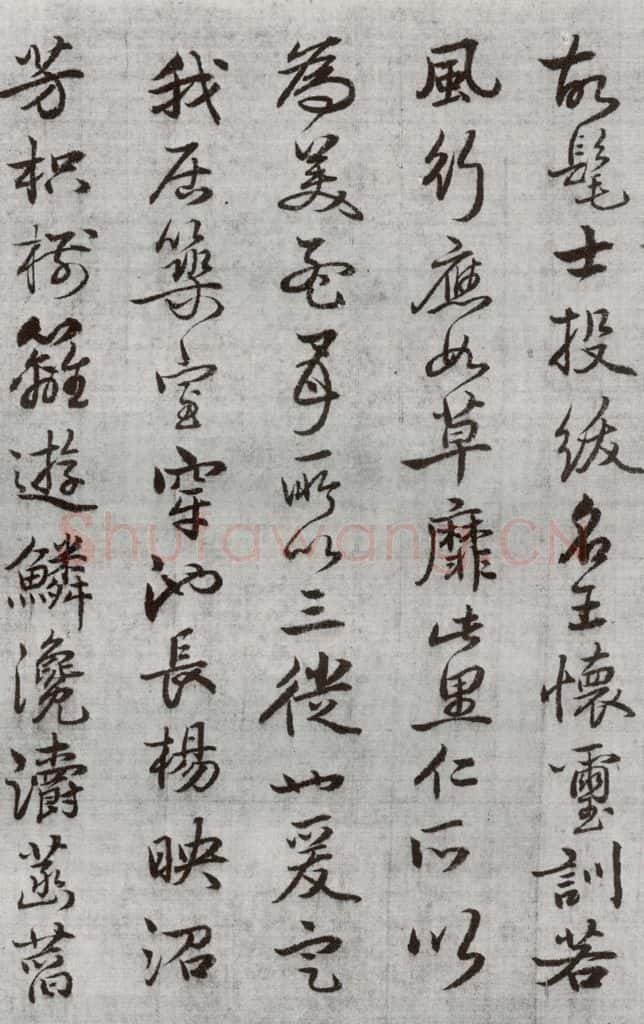 故髦士投紱名王懷璽訓若
風行應如草靡此里仁所以
為美孟母所以三徙也爰定
我居築室穿池長楊映沼
芳枳樹籬遊鱗瀺灂菡萏
Shufawang.CN